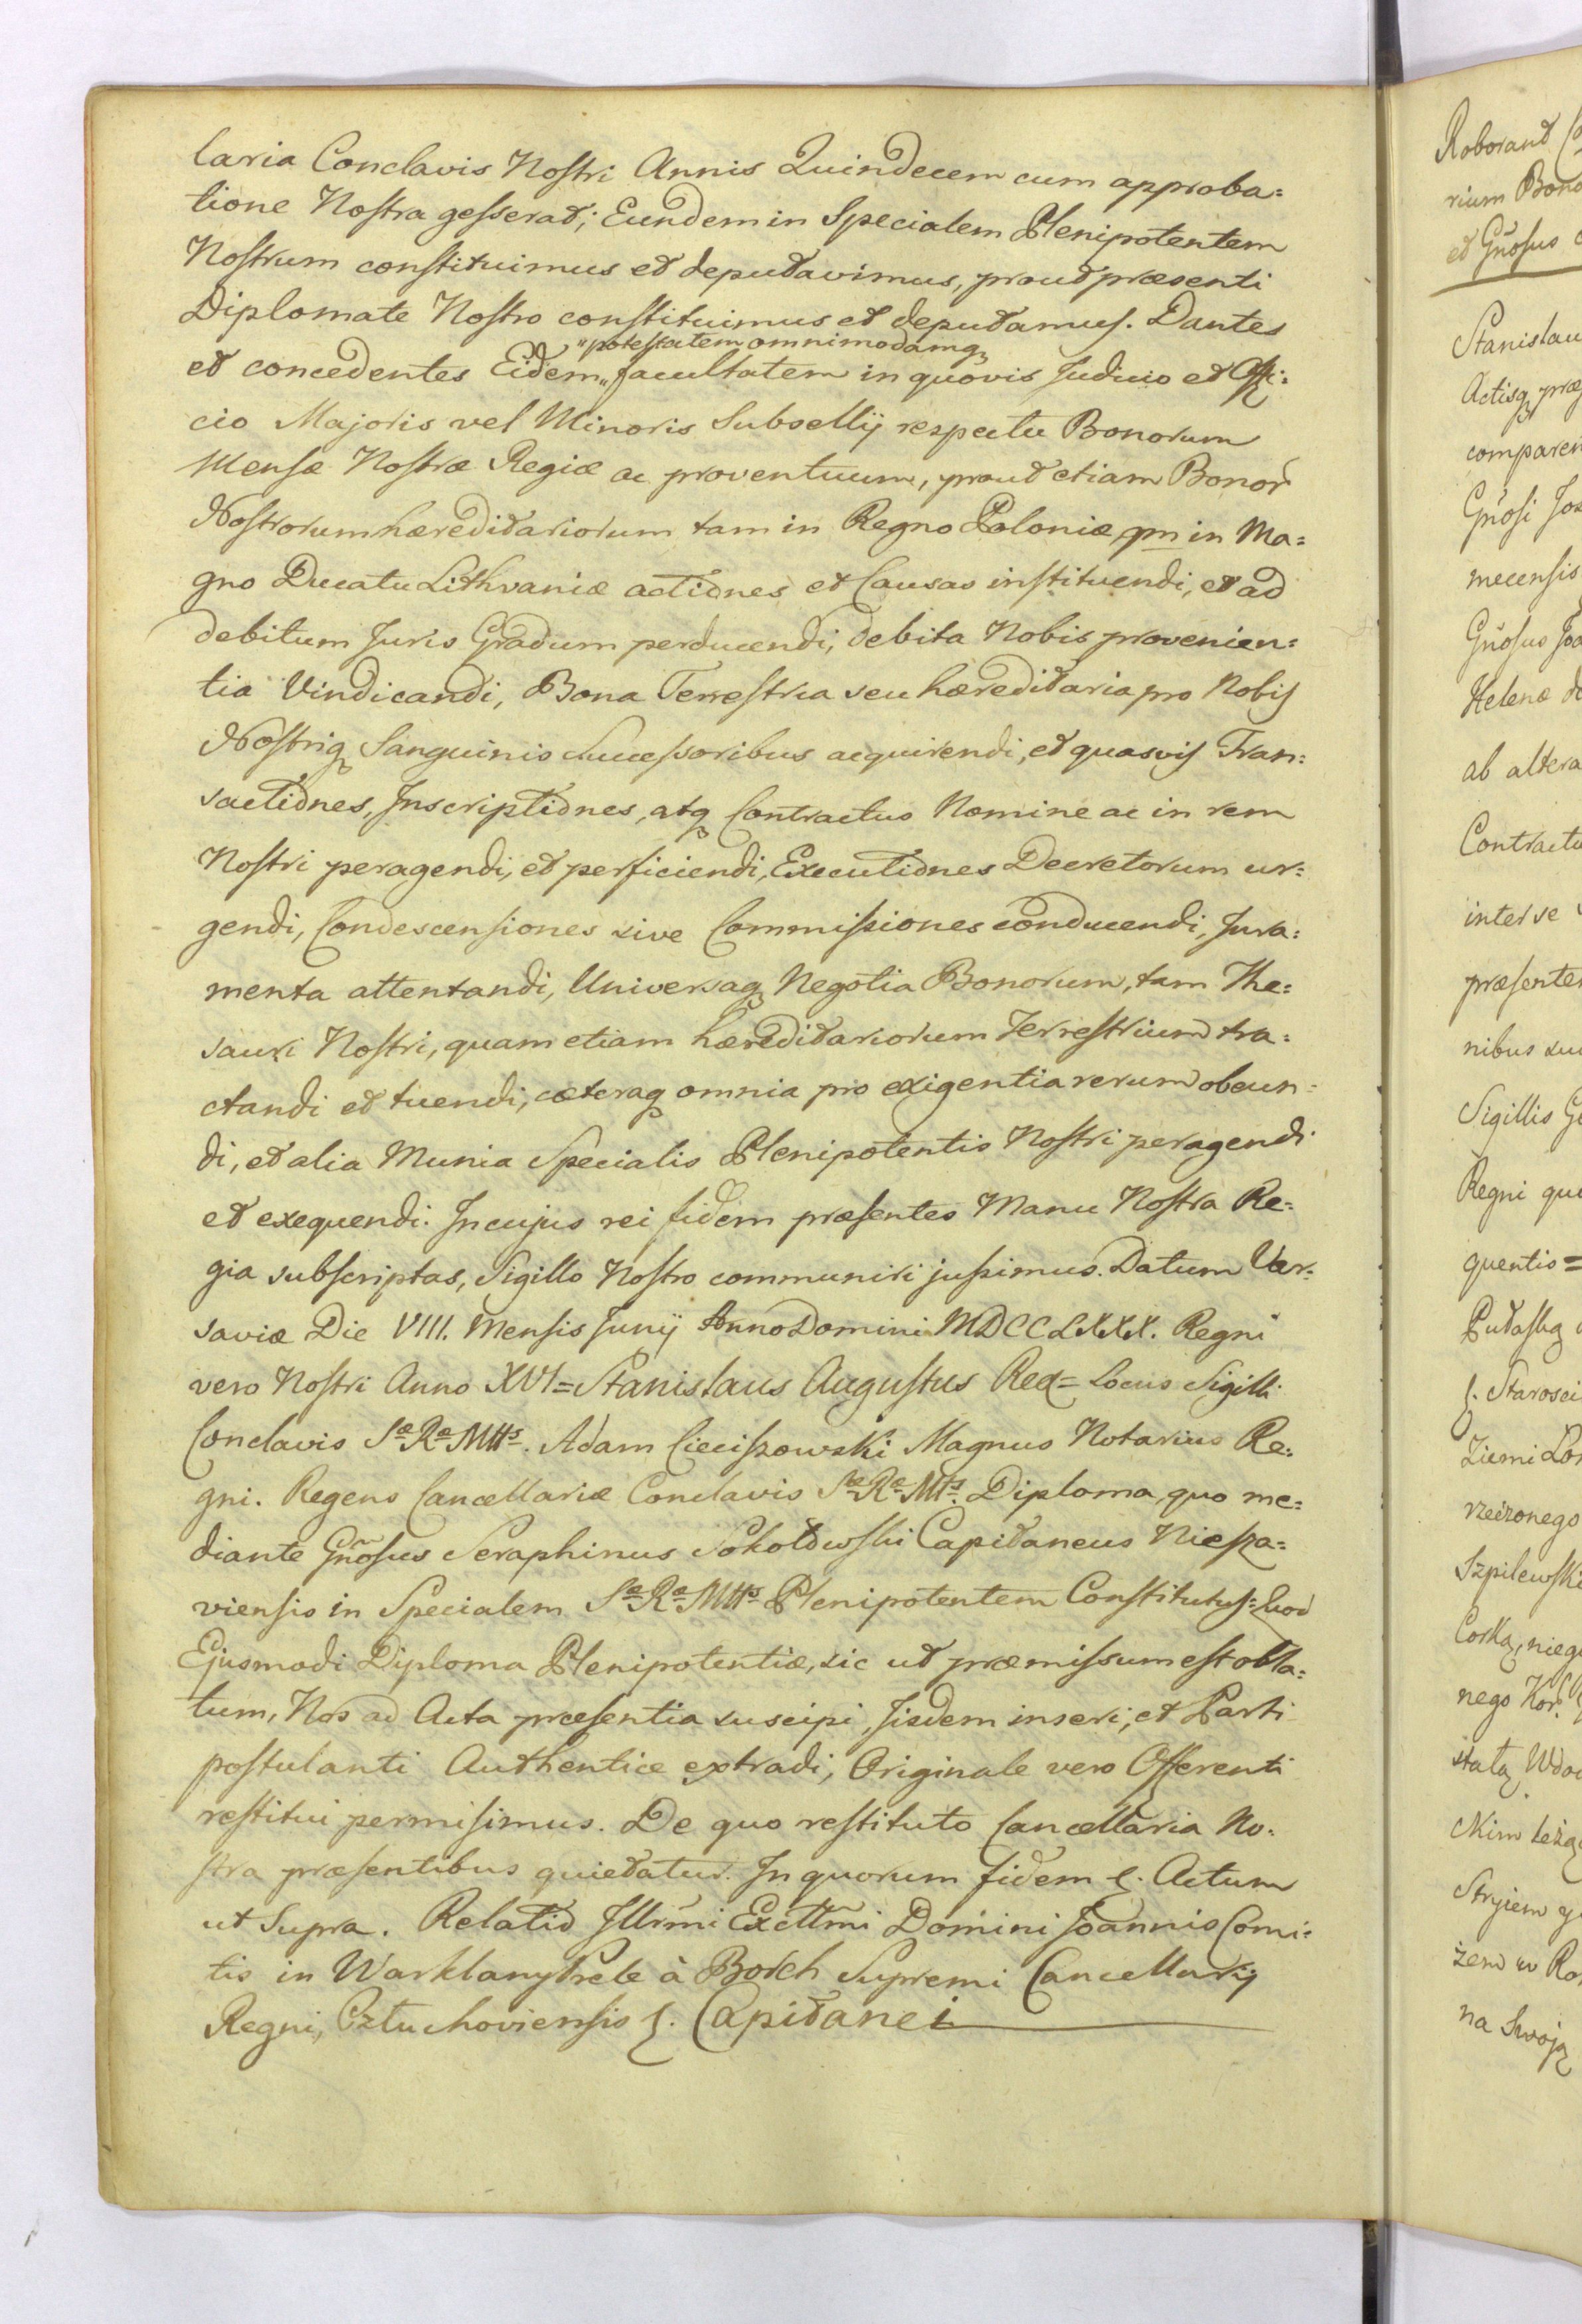 laria Conclavis Nostri Annis Quindecem cum approba=
tione Nostra gesserat; Eundem in Specialem Plenipotentem
Nostrum constituimus et deputavimus, prout præsenti
Diplomate Nostro constituimus et deputamus. Dantes
"potestatem omnimodamq
et concedentes Eidem„ facultatem in quovis Judicio et Offi=
cio Majoris vel Minoris Subsellij respectu Bonorum
Mensæ Nostræ Regiæ ac proventuum, prout etiam Bonor
Nostrorum hæreditariorum tam in Regno Poloniæ qm in Ma=
gno Ducatu Lithvaniæ actiones et Causas instituendi, et ad
debitum Juris Gradum perducendi, debita Nobis provenien=
tia Vindicandi, Bona Terrestria seu hæreditaria pro Nobis
Nostriq Sanguinis Successoribus acquirendi, et quasvis Tran=
sactiones, Inscriptiones, atq Contractus Nomine ac in rem
Nostri peragendi, et perficiendi, Executiones Decretorum ur=
gendi, Condescensiones sive Commissiones conducendi, Jura=
menta attentandi, Universaq Negotia Bonorum, tam The=
sauri Nostri, quam etiam hæreditariorum Terrestrium tra=
ctandi et tuendi, cæteraq omnia pro exigentia rerum obeun=
di, et alia Munia Specialis Plenipotentis Nostri peragendi
et exequendi. In cujus rei fidem præsentes Manu Nostra Re=
gia subscriptas, Sigillo Nostro communiri jussimus. Datum Var=
saviæ Die VIII. Mensis Junij Anno Domini MDCCLXXX. Regni
vero Nostri Anno XVI= Stanislaus Augustus Rex= Locus Sigilli
Conclavis Sæ Ræ Mttis. Adam Cieciszowski Magnus Notarius Re=
gni. Regens Cancellariæ Conclavis Sæ Ræ Mttis. Diploma, quo me=
diante Gnosus Seraphinus Sokołowski Capitaneus Niesza=
viensis in Specialem Sæ Ræ Mttis Plenipotentem Constitutus= Quod
Ejusmodi Diploma Plenipotentiæ, sic ut præmissum est obla=
tum, Nos ad Acta præsentia suscipi, Iisdem inseri, et Parti
postulanti Authentice extradi, Originale vero Offerenti
restitui permisimus. De quo restituto Cancellaria No=
stra præsentibus quietatur. In quorum fidem &. Actum
ut Supra. Relatio Illrmi Excttmi Domini Joannis Comi=
tis in Warklany Prele à Borch Supremi Cancellarij
Regni, Cztuchoviensis &. Capitanei
Roborant
rium Bono
et Gnosus
Stanislau
Actisq præ
comparen
Gnosi Jos
mecensis
Gnosus Joa
Helenæ de
ab altera
Contractu
inter se
præsente
nibus su
Sigillis G
Regni qu
quentis=
&. Starosci
Ziemi Lo
rzeczonego
Szpilewski
Corka, nieg
nego Kor.
Stryiem
żem w Ro
na Swoją